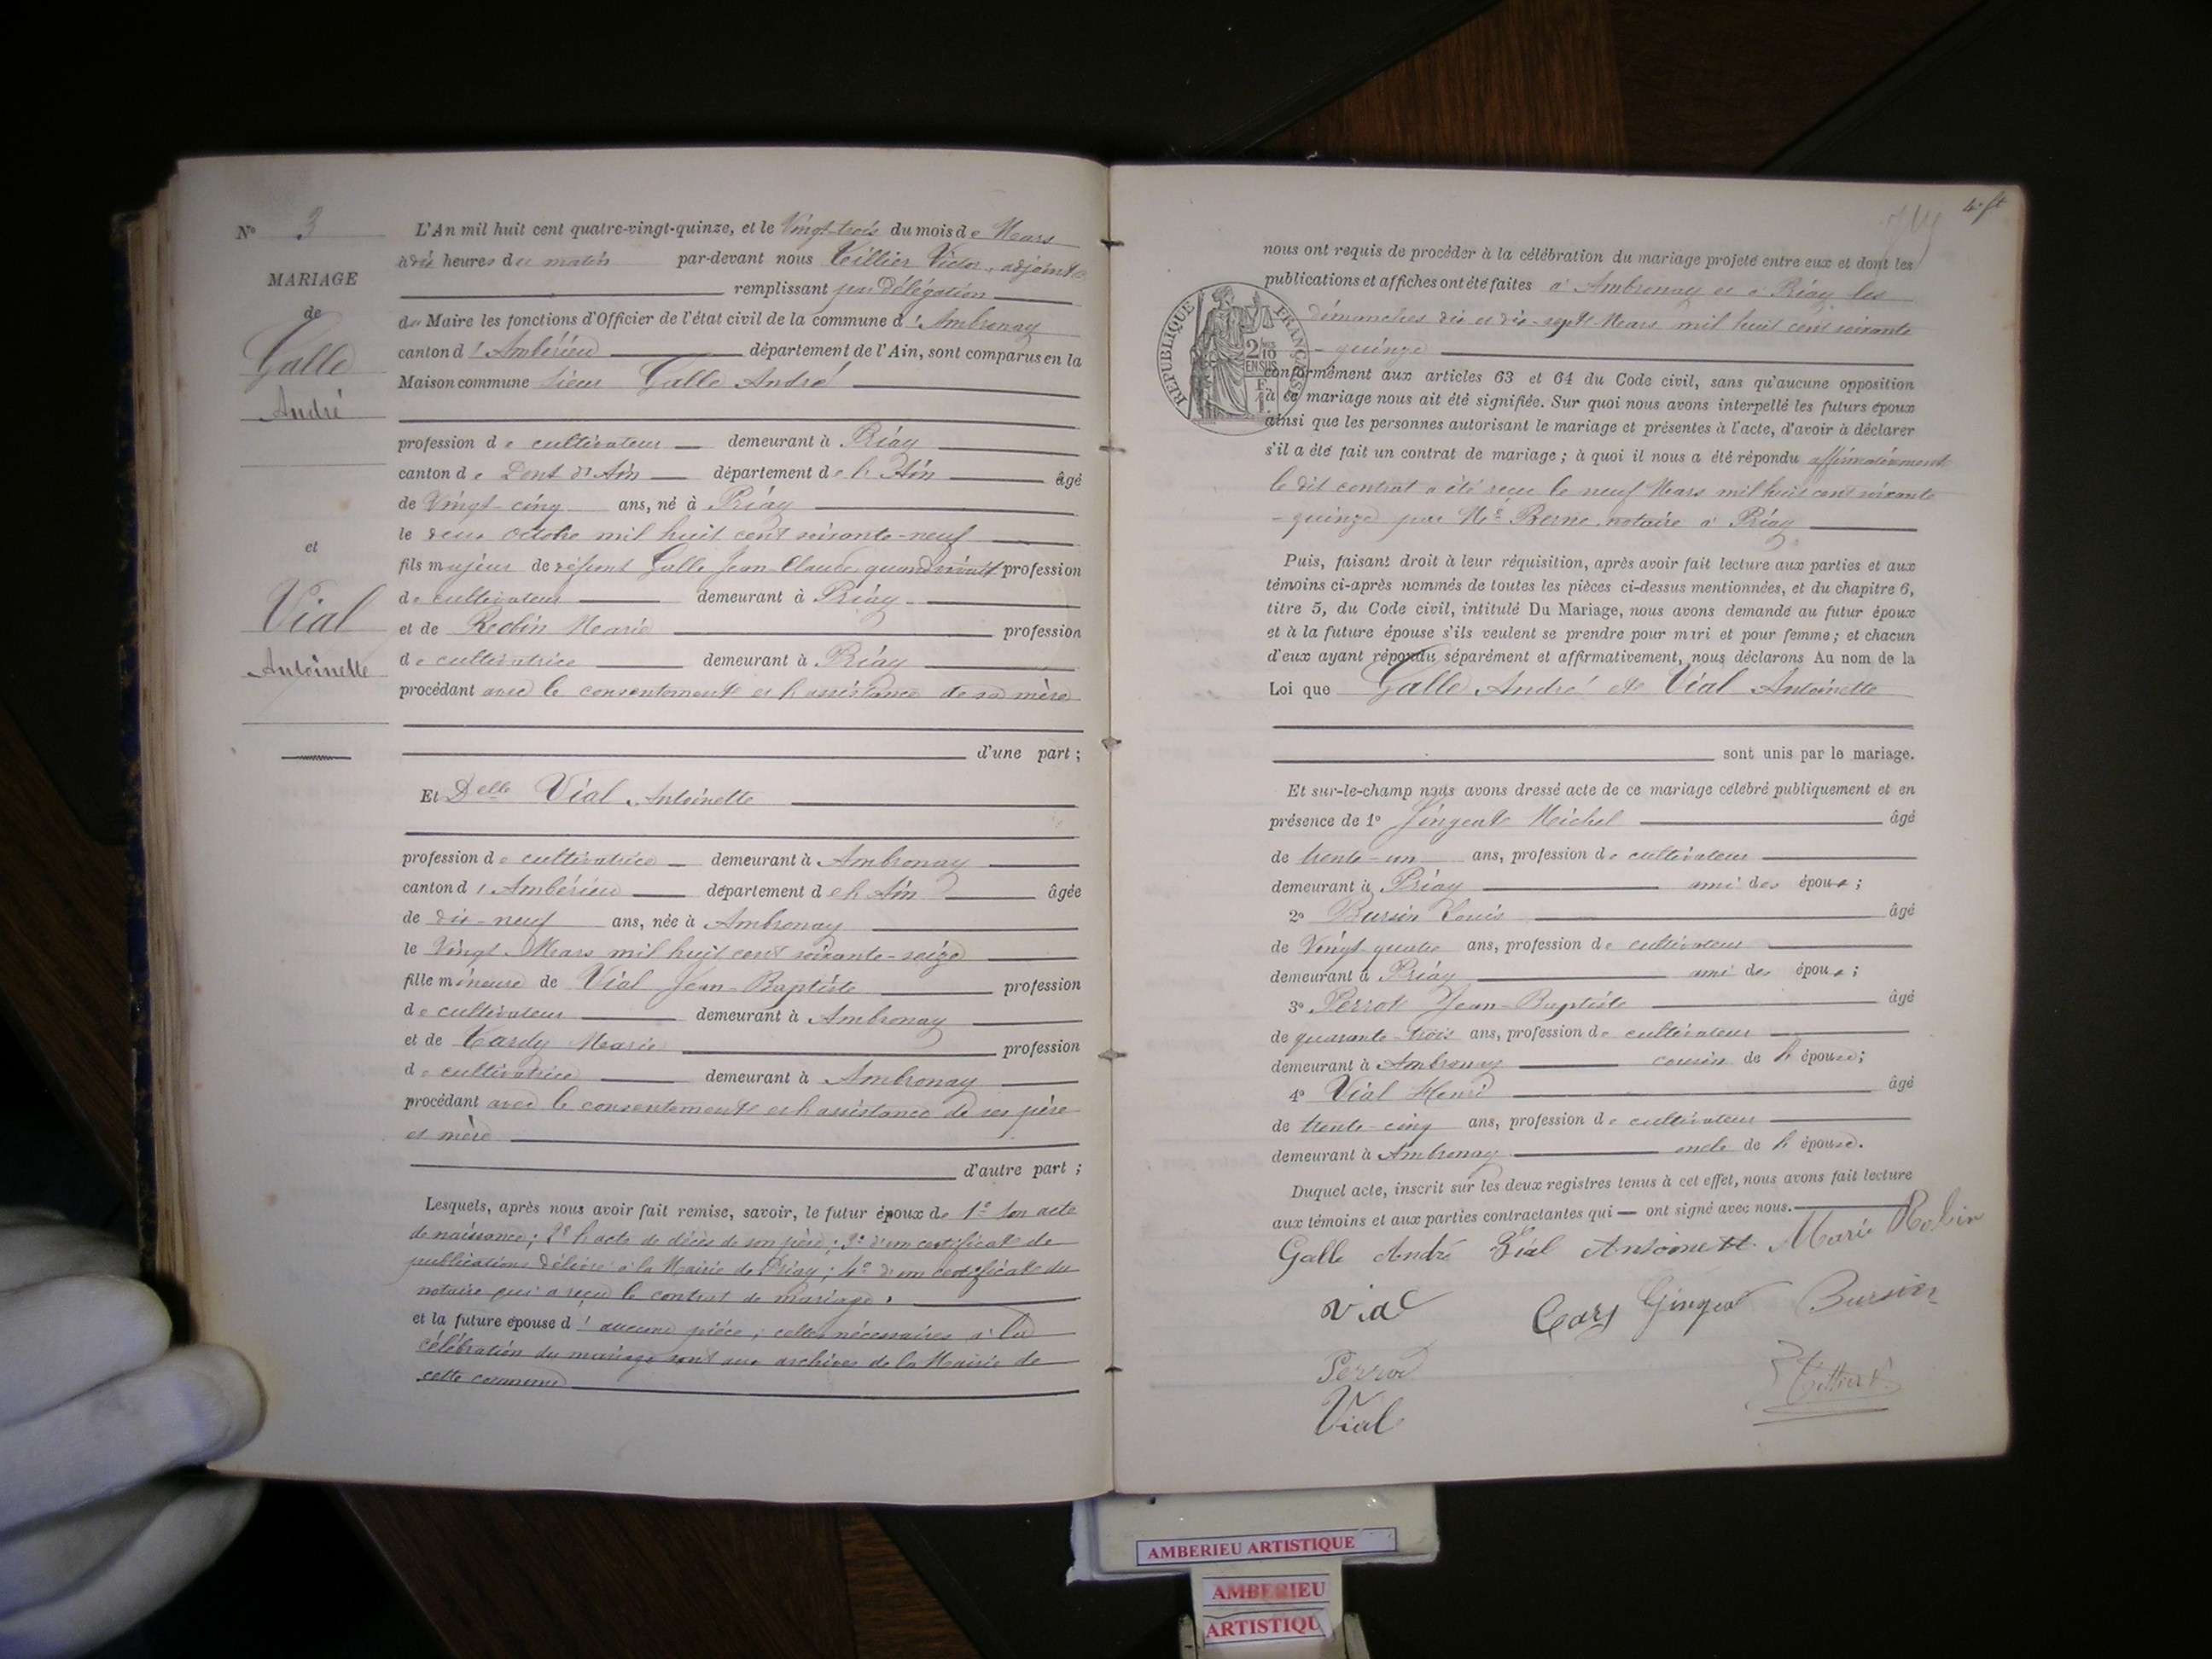 N° 3
MARIAGE
de
Galle
André
et
Vial
Antoinette
L'An mil huit cent quatre-vingt-quinze, et le Vingt-trois du mois de Mars
à dix heures du matin par-devant nous Tillier Victor, adjoint
remplissant par délégation
du Maire les fonctions d'Officier de l'état civil de la commune d'Ambronay
canton d'Ambérieu département de l'Ain, sont comparus en la
Maison commune Sieur Galle André
profession de cultivateur demeurant à Priay
canton de Pont d'Ain département de l'Ain âgé
de Vingt-cinq ans, né à Priay
le deux octobre mil huit cent soixante-neuf
fils majeur de défunt Galle Jean-Claude, quand vivait profession
de cultivateur demeurant à Priay
et de Robin Marie profession
de cultivatrice demeurant à Priay
procédant avec le consentement et l'assistance de sa mère
d'une part ;
Et Delle Vial Antoinette
profession de cultivatrice demeurant à Ambronay
canton d'Ambérieu département de l'Ain âgée
de dix-neuf ans, née à Ambronay
le Vingt Mars mil huit cent soixante-seize
fille mineure de Vial Jean-Baptiste profession
de cultivateur demeurant à Ambronay
et de Tardy Marie profession
de cultivatrice demeurant à Ambronay
procédant avec le consentement et l'assistance de ses père
et mère
d'autre part ;
Lesquels, après nous avoir fait remise, savoir, le futur époux de 1° son acte
de naissance; 2° l'acte de décès de son père; 3° d'un certificat de
publications délivré à la Mairie de Priay; 4° d'un certificat du
notaire qui a reçu le contrat de mariage.
et la future épouse d'aucune pièce, celles nécessaires à la
célébration du mariage sont aux archives de la Mairie de
cette commune
4e ft
nous ont requis de procéder à la célébration du mariage projeté entre eux et dont les
publications et affiches ont été faites à Ambronay et à Priay les
dimanches dix et dix-sept Mars mil huit cent soixante
-quinze
RÉPUBLIQUE FRANÇAISE
2/10 EN SUS
conformément aux articles 63 et 64 du Code civil, sans qu'aucune opposition
à ce mariage nous ait été signifiée. Sur quoi nous avons interpellé les futurs époux
ainsi que les personnes autorisant le mariage et présentes à l'acte, d'avoir à déclarer
s'il a été fait un contrat de mariage ; à quoi il nous a été répondu affirmativement
le dit contrat a été reçu le neuf Mars mil huit cent soixante
-quinze par Me Berne, notaire à Priay
Puis, faisant droit à leur réquisition, après avoir fait lecture aux parties et aux
témoins ci-après nommés de toutes les pièces ci-dessus mentionnées, et du chapitre 6,
titre 5, du Code civil, intitulé Du Mariage, nous avons demandé au futur époux
et à la future épouse s'ils veulent se prendre pour mari et pour femme ; et chacun
d'eux ayant répondu séparément et affirmativement, nous déclarons Au nom de la
Loi que Galle André et Vial Antoinette
sont unis par le mariage.
Et sur-le-champ nous avons dressé acte de ce mariage célébré publiquement et en
présence de 1° Gingent Michel âgé
de trente-un ans, profession de cultivateur
demeurant à Priay ami des époux ;
2° Bursin Louis âgé
de Vingt-quatre ans, profession de cultivateur
demeurant à Priay ami des époux ;
3° Perrot Jean-Baptiste âgé
de quarante-trois ans, profession de cultivateur
demeurant à Ambronay cousin de l'épouse;
4° Vial Henri âgé
de trente-cinq ans, profession de cultivateur
demeurant à Ambronay oncle de l'épouse.
Duquel acte, inscrit sur les deux registres tenus à cet effet, nous avons fait lecture
aux témoins et aux parties contractantes qui ont signé avec nous.
Galle André Vial Antoinett Marie Robin
Vial Gingent Bursin
Perrod
Vial
AMBERIEU ARTISTIQUE
AMBERIEU
ARTISTIQU